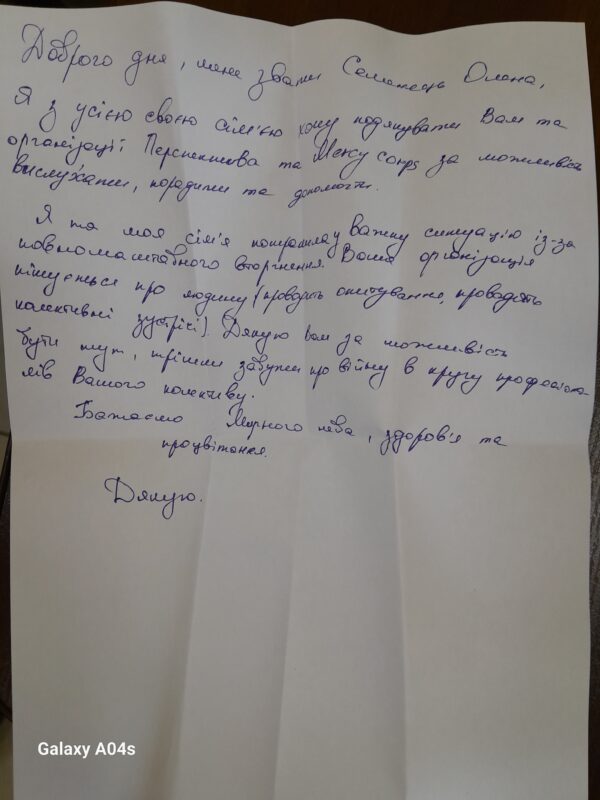 Доброго дня, мене звати Олена.
Я з усією своєю сім'єю хочу подякувати Вам та
організації Перспектива та Mercy Corps за можливість
вислухати, порадити та допомогти.
Я та моя сім'я потрапила у важку ситуацію із-за
повномаштабного вторгнення. Ваша організація
піклується про людину (проводять опитування, проводять
колективні зустрічі). Дякую Вам за можливість
бути тут, трішки забути про війну в кругу професіона-
лів Вашого колективу.
Бажаємо Мирного неба, здоров'я та
процвітання.
Дякую.
Galaxy A04s